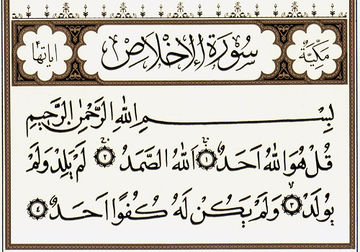 مكية سورة الإخلاص آياتها
بِسْمِ اللهِ الرَّحْمٰنِ الرَّحِيمِ
قُلْ هُوَ اللهُ أَحَدٌ ١ اَللهُ الصَّمَدُ ٢ لَمْ يَلِدْ وَلَمْ
يُولَدْ ٣ وَلَمْ يَكُنْ لَهُ كُفُوًا اَحَدٌ ٤